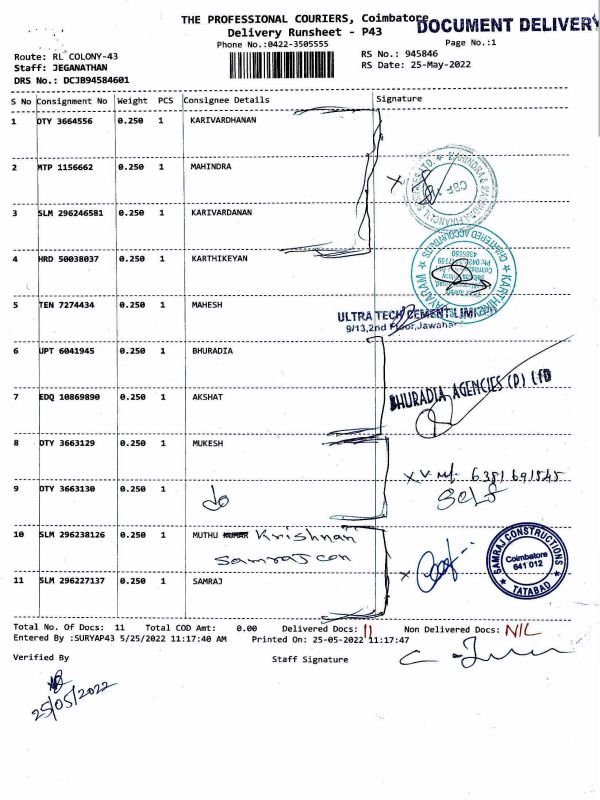 THE PROFESSIONAL COURIERS, Coimbatore
DOCUMENT DELIVERY
Delivery Runsheet - P43
Phone No.:0422-3505555
Page No.:1
Route: RL COLONY-43
RS No.: 945846
Staff: JEGANATHAN
RS Date: 25-May-2022
DRS No.: DCJB94584601
S No Consignment No Weight PCS Consignee Details Signature
1 DTY 3664556 0.250 1 KARIVARDHANAN
2 MTP 1156662 0.250 1 MAHINDRA
MAHINDRA & MAHINDRA FINANCIAL SERVICES LTD.
CBF
3 SLM 296246581 0.250 1 KARIVARDANAN
4 HRD 50038037 0.250 1 KARTHIKEYAN
CHARTERED ACCOUNTANTS
5 TEN 7274434 0.250 1 MAHESH
ULTRA TECH CEMENT LIMITED
9/13,2nd Floor,Jawahar
6 UPT 6041945 0.250 1 BHURADIA
7 EDQ 10869890 0.250 1 AKSHAT
BHURADIA AGENCIES (P) LTD
8 DTY 3663129 0.250 1 MUKESH
6381691545
9 DTY 3663130 0.250 1 do
Self
10 SLM 296238126 0.250 1 MUTHU KUMAR Krishnan
Samraj con
SAMRAJ CONSTRUCTIONS
Coimbatore
641 012
TATABAD
11 SLM 296227137 0.250 1 SAMRAJ
Total No. Of Docs: 11 Total COD Amt: 0.00 Delivered Docs: 11 Non Delivered Docs: NIL
Entered By :SURYAP43 5/25/2022 11:17:40 AM Printed On: 25-05-2022 11:17:47
Verified By Staff Signature
25/05/2022